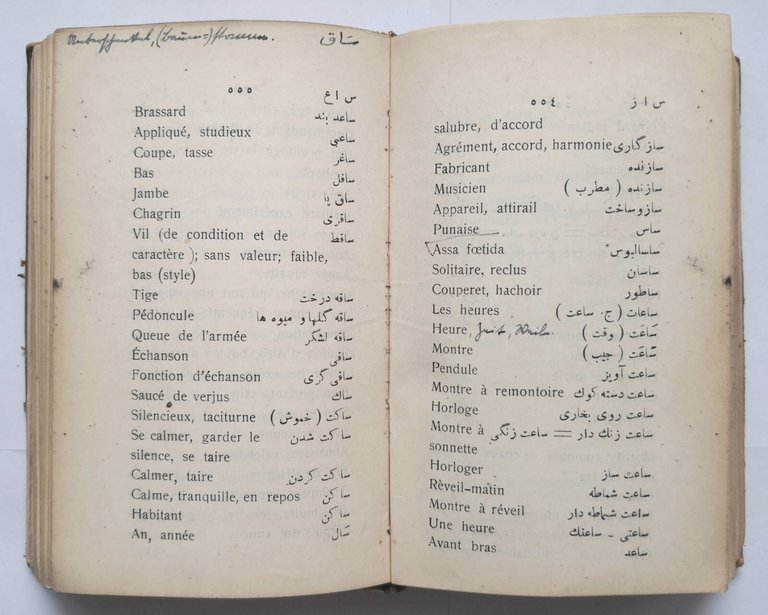 س از ٥٥٤
salubre, d'accord
Agrément, accord, harmonie سازگاری
Fabricant سازنده
Musicien سازنده ( مطرب )
Appareil, attirail سازوساخت
Punaise ساس
Assa fœtida ساسالیوس
Solitaire, reclus ساسان
Couperet, hachoir ساطور
Les heures ساعات ( ج. ساعت )
Heure, Zeit, Weile. سَاعَت ( وقت )
Montre سَاعَت ( جیب )
Pendule ساعت آویز
Montre à remontoire ساعت دسته کوك
Horloge ساعت روی بخاری
Montre à ساعت زنك دار = ساعت زنگی
sonnette
Horloger ساعت ساز
Rêveil-matin ساعت شماطه
Montre à réveil ساعت شماطه دار
Une heure ساعتی ـ ساعتك
Avant bras ساعد
Unterschenkel, (Baum=) stamm. سَاق
س اع ٥٥٥
Brassard ساعد بند
Appliqué, studieux ساعی
Coupe, tasse ساغر
Bas سافل
Jambe ساق پا
Chagrin ساقری
Vil (de condition et de ساقط
caractère ); sans valeur; faible,
bas (style)
Tige ساقه درخت
Pédoncule ساقه گلها و میوه ها
Queue de l'armée ساقه لشکر
Échanson ساقی
Fonction d'échanson ساقی گری
Saucé de verjus ساك
Silencieux, taciturne ساکت ( خموش )
Se calmer, garder le ساکت شدن
silence, se taire
Calmer, taire ساکت کردن
Calme, tranquille, en repos ساکن
Habitant ساکن
An, année سَال